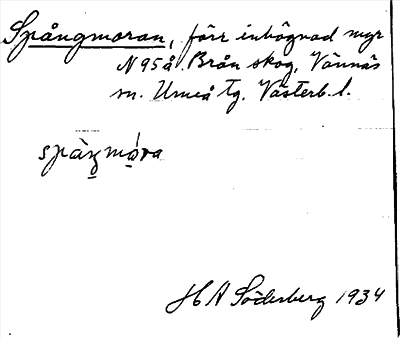 Spångmoran, förr inhägnad myr
N 95 å Brån skog, Vännäs
sn. Umeå tg. Västerb. l.
spàŋmó̠ra
H A Söderberg 1934